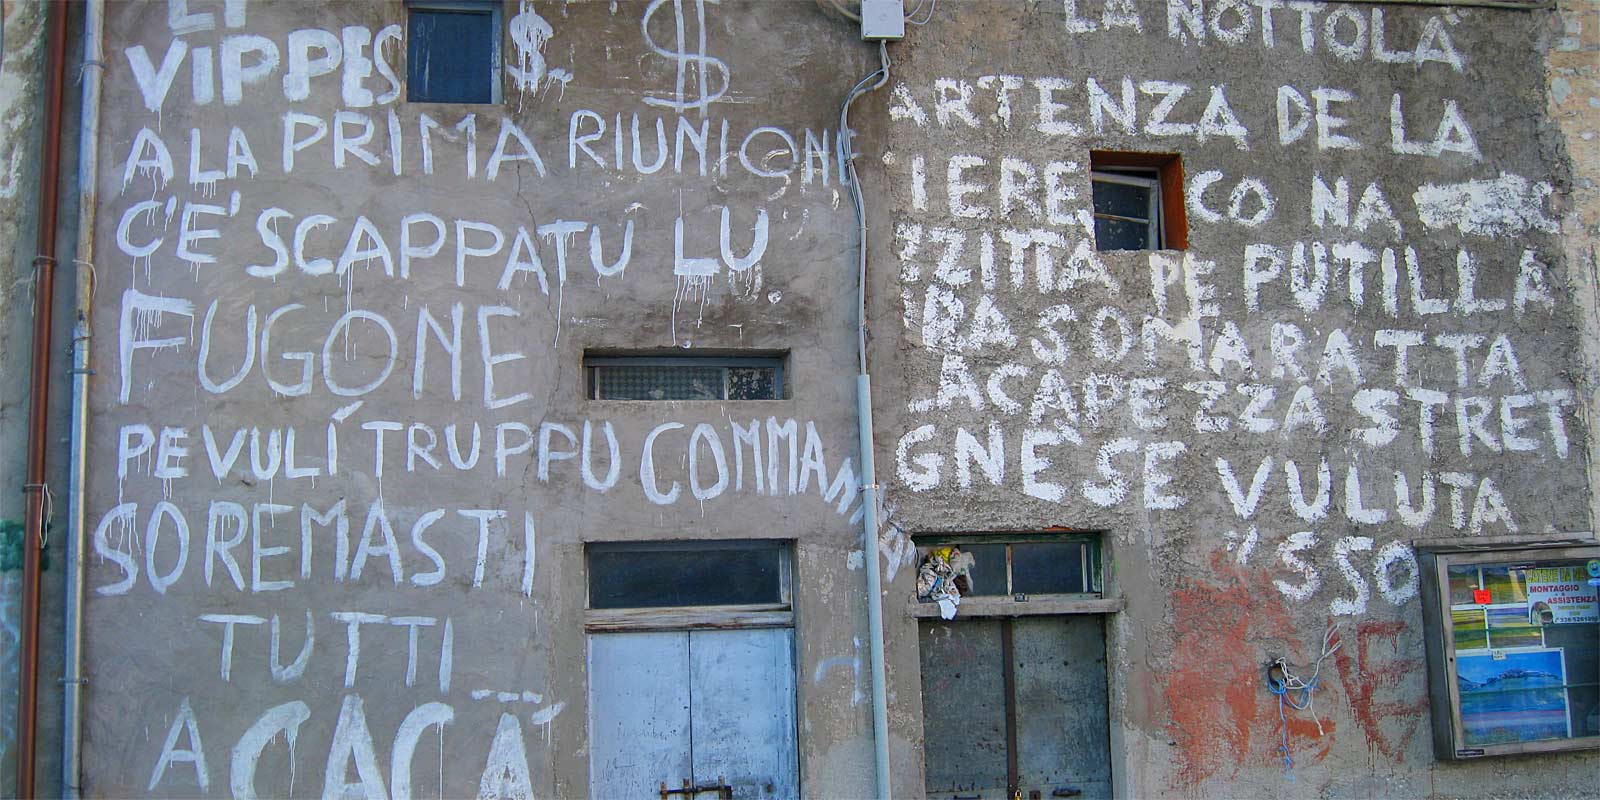 LI
VIPPES $ $
A LA PRIMA RIUNIONE
C'E' SCAPPATU LU
FUGONE
PE VULÍ TRUPPU COMMAN
SO REMASTI
TUTTI
A CACÀ
LA NOTTOLA
ARTENZA DE LA
IERE CO NA
ZZITTA PE PUTILLA
RA SOMARATTA
ACAPEZZA STRET
GNE SE VULUTA
SSO
MONTAGGIO
ASSISTENZA